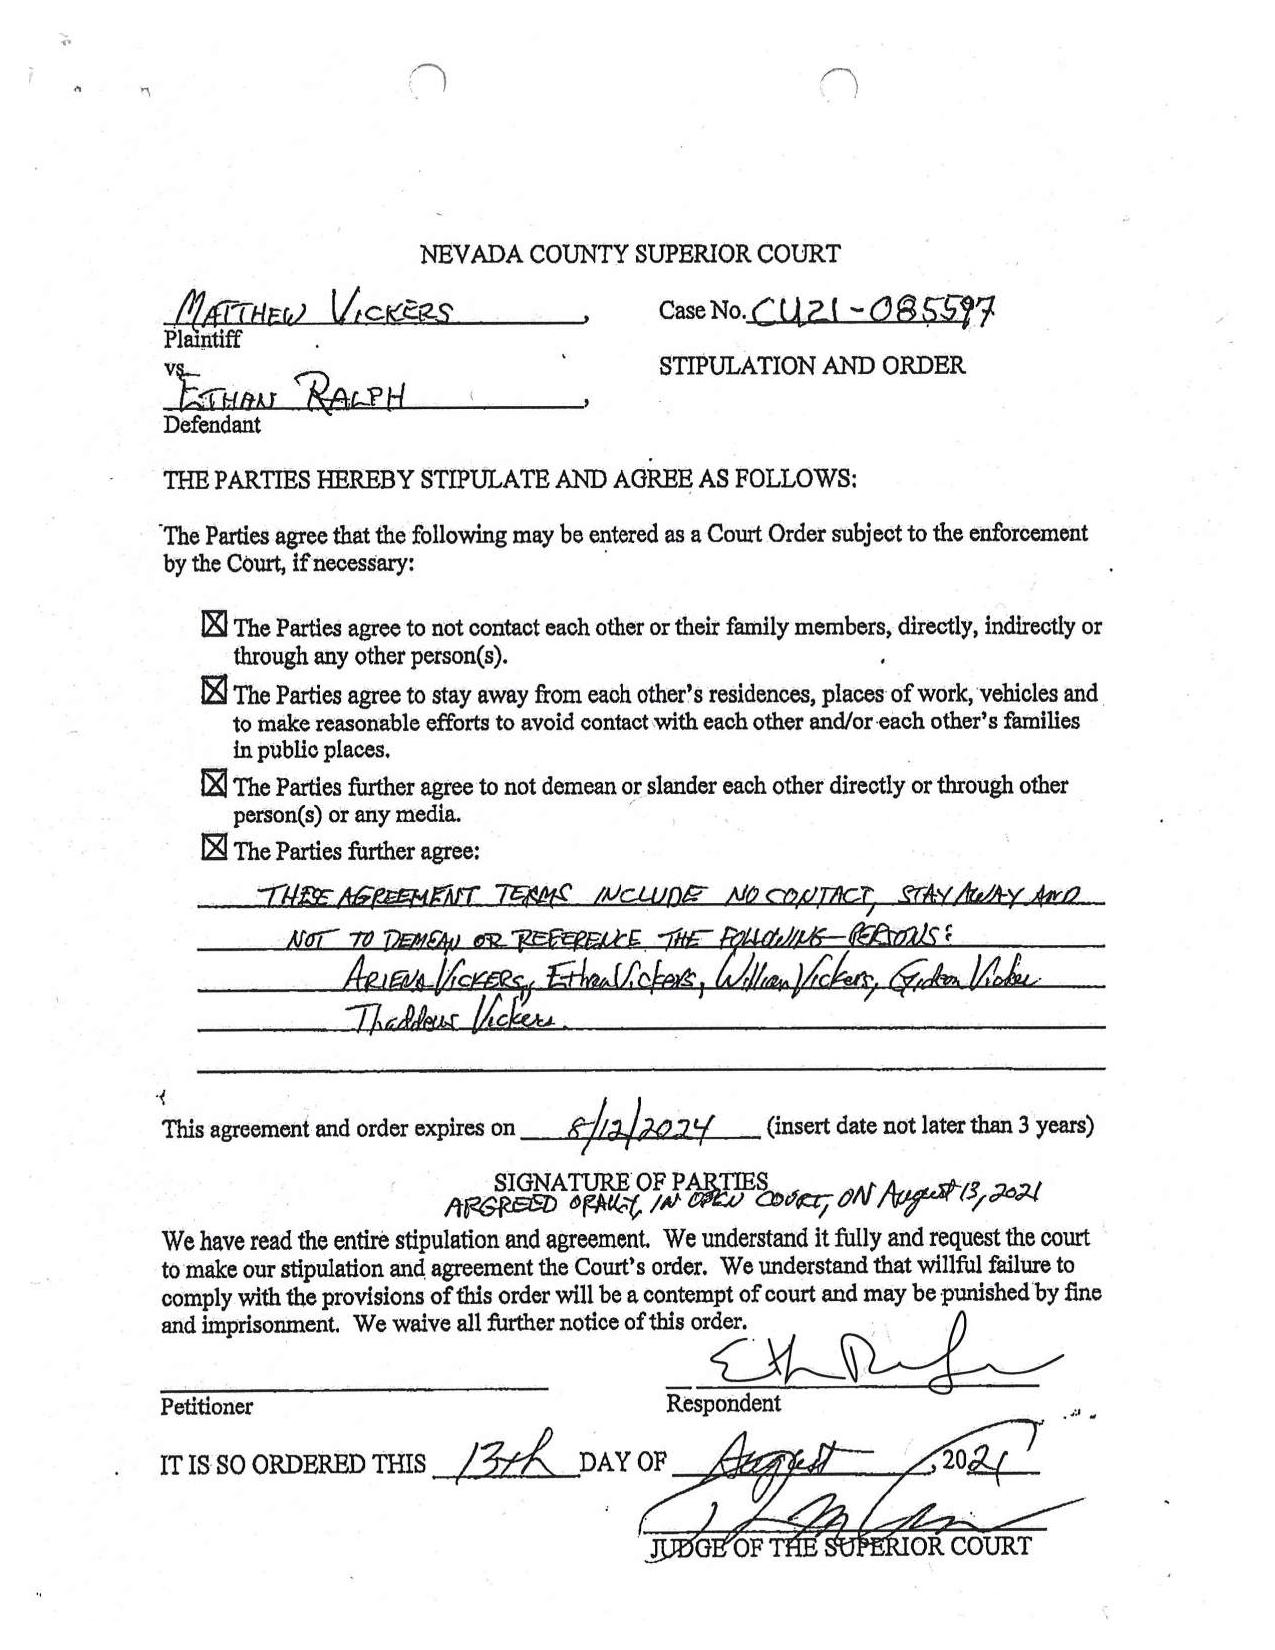 NEVADA COUNTY SUPERIOR COURT
MATTHEW VICKERS,
Case No. CU21-085597
Plaintiff
vs.
STIPULATION AND ORDER
ETHAN RALPH,
Defendant
THE PARTIES HEREBY STIPULATE AND AGREE AS FOLLOWS:
The Parties agree that the following may be entered as a Court Order subject to the enforcement
by the Court, if necessary:
☒ The Parties agree to not contact each other or their family members, directly, indirectly or
through any other person(s).
☒ The Parties agree to stay away from each other's residences, places of work, vehicles and
to make reasonable efforts to avoid contact with each other and/or each other's families
in public places.
☒ The Parties further agree to not demean or slander each other directly or through other
person(s) or any media.
☒ The Parties further agree:
THESE AGREEMENT TERMS INCLUDE NO CONTACT, STAY AWAY AND
NOT TO DEMEAN OR REFERENCE THE FOLLOWING PERSONS:
ARIENA VICKERS, Ethan Vickers, William Vickers, Gideon Vickers
Thaddeus Vickers.
This agreement and order expires on 8/12/2024 (insert date not later than 3 years)
SIGNATURE OF PARTIES
ARGREED ORALLY, IN OPEN COURT, ON August 13, 2021
We have read the entire stipulation and agreement. We understand it fully and request the court
to make our stipulation and agreement the Court's order. We understand that willful failure to
comply with the provisions of this order will be a contempt of court and may be punished by fine
and imprisonment. We waive all further notice of this order.
Petitioner
Respondent
IT IS SO ORDERED THIS 13th DAY OF August, 2021
JUDGE OF THE SUPERIOR COURT